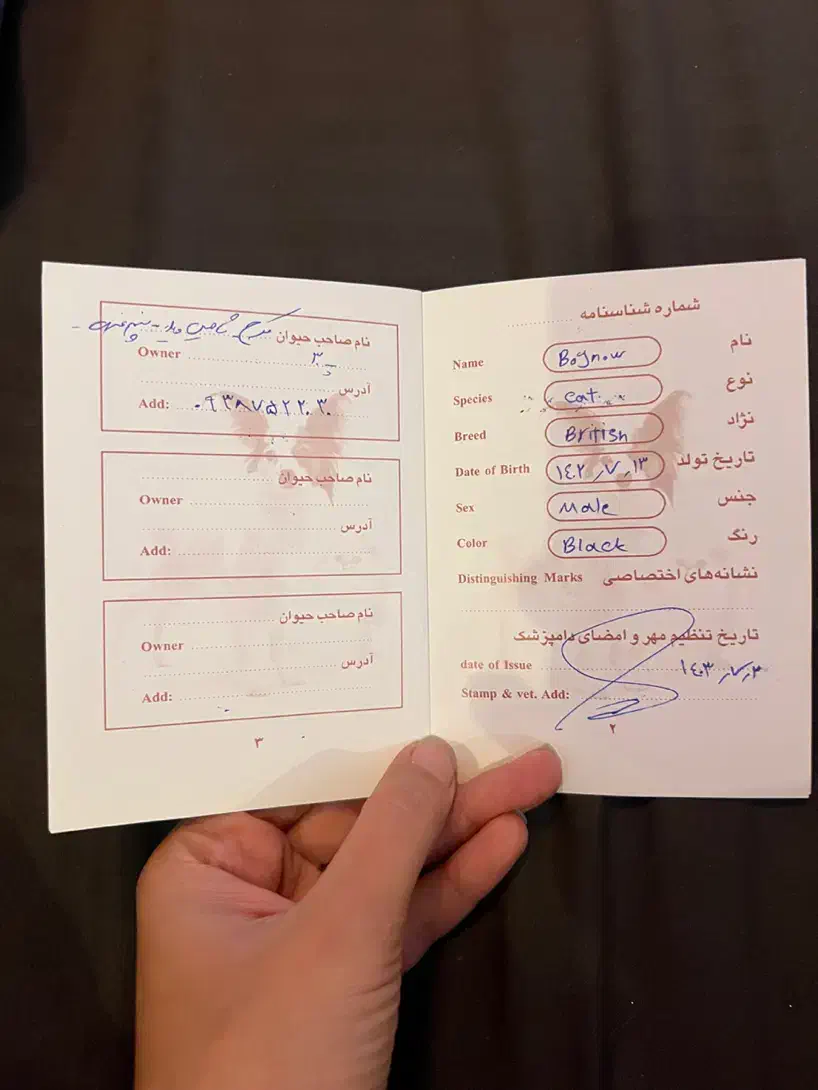 شماره شناسنامه
Name نام
Species cat نوع
Breed British نژاد
Date of Birth تاریخ تولد
Sex Male جنس
Color Black رنگ
Distinguishing Marks نشانه‌های اختصاصی
تاریخ تنظیم مهر و امضای دامپزشک
date of Issue
Stamp & vet. Add:
۲
نام صاحب حیوان
Owner
آدرس
Add: ۰۹۳۸۷۵۲۲۰۳۰
نام صاحب حیوان
Owner
آدرس
Add:
نام صاحب حیوان
Owner
آدرس
Add:
۳